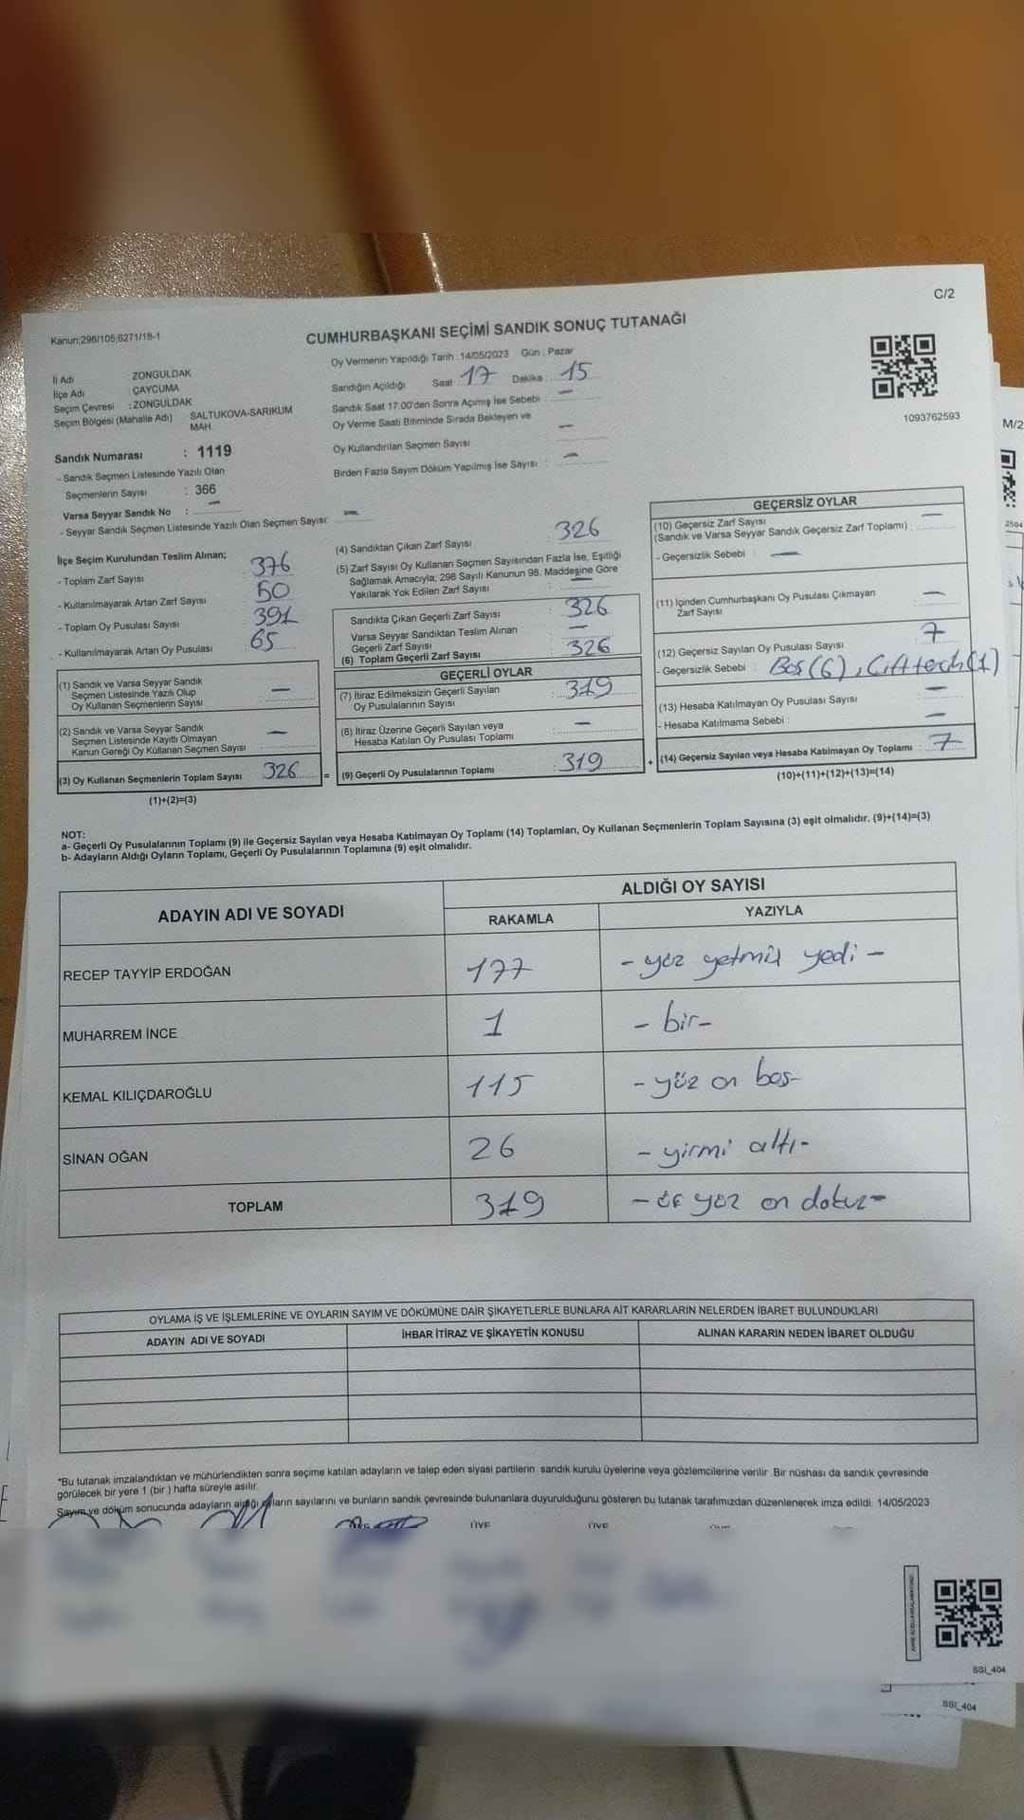 C/2
Kanun;298/105;6271/18-1
CUMHURBAŞKANI SEÇİMİ SANDIK SONUÇ TUTANAĞI
Oy Vermenin Yapıldığı Tarih : 14/05/2023 Gün : Pazar
İl Adı ZONGULDAK
İlçe Adı ÇAYCUMA
Seçim Çevresi : ZONGULDAK
Seçim Bölgesi (Mahalle Adı) SALTUKOVA-SARIKUM MAH.
Sandığın Açıldığı Saat : 17 Dakika : 15
Sandık Saat 17:00'den Sonra Açılmış İse Sebebi : —
Oy Verme Saati Bitiminde Sırada Bekleyen ve
Oy Kullandırılan Seçmen Sayısı —
Birden Fazla Sayım Döküm Yapılmış İse Sayısı : —
1093762593
M/2
Sandık Numarası : 1119
- Sandık Seçmen Listesinde Yazılı Olan
Seçmenlerin Sayısı : 366
Varsa Seyyar Sandık No : —
- Seyyar Sandık Seçmen Listesinde Yazılı Olan Seçmen Sayısı: —
İlçe Seçim Kurulundan Teslim Alınan;
- Toplam Zarf Sayısı 376
- Kullanılmayarak Artan Zarf Sayısı 50
- Toplam Oy Pusulası Sayısı 391
- Kullanılmayarak Artan Oy Pusulası 65
(1) Sandık ve Varsa Seyyar Sandık
Seçmen Listesinde Yazılı Olup
Oy Kullanan Seçmenlerin Sayısı —
(2) Sandık ve Varsa Seyyar Sandık
Seçmen Listesinde Kayıtlı Olmayan
Kanun Gereği Oy Kullanan Seçmen Sayısı —
(3) Oy Kullanan Seçmenlerin Toplam Sayısı 326 =
(1)+(2)=(3)
(4) Sandıktan Çıkan Zarf Sayısı 326
(5) Zarf Sayısı Oy Kullanan Seçmen Sayısından Fazla İse, Eşitliği
Sağlamak Amacıyla, 298 Sayılı Kanunun 98. Maddesine Göre
Yakılarak Yok Edilen Zarf Sayısı : —
Sandıkta Çıkan Geçerli Zarf Sayısı : 326
Varsa Seyyar Sandıktan Teslim Alınan
Geçerli Zarf Sayısı —
(6) Toplam Geçerli Zarf Sayısı : 326
GEÇERLİ OYLAR
(7) İtiraz Edilmeksizin Geçerli Sayılan
Oy Pusulalarının Sayısı : 319
(8) İtiraz Üzerine Geçerli Sayılan veya
Hesaba Katılan Oy Pusulası Toplamı —
(9) Geçerli Oy Pusulalarının Toplamı : 319 +
GEÇERSİZ OYLAR
(10) Geçersiz Zarf Sayısı
(Sandık ve Varsa Seyyar Sandık Geçersiz Zarf Toplamı) : —
- Geçersizlik Sebebi : —
(11) İçinden Cumhurbaşkanı Oy Pusulası Çıkmayan
Zarf Sayısı —
(12) Geçersiz Sayılan Oy Pusulası Sayısı 7
- Geçersizlik Sebebi : Boş(6), Çift tercih(1)
(13) Hesaba Katılmayan Oy Pusulası Sayısı —
- Hesaba Katılmama Sebebi : —
(14) Geçersiz Sayılan veya Hesaba Katılmayan Oy Toplamı : 7
(10)+(11)+(12)+(13)=(14)
NOT:
a- Geçerli Oy Pusulalarının Toplamı (9) ile Geçersiz Sayılan veya Hesaba Katılmayan Oy Toplamı (14) Toplamları, Oy Kullanan Seçmenlerin Toplam Sayısına (3) eşit olmalıdır. (9)+(14)=(3)
b- Adayların Aldığı Oyların Toplamı, Geçerli Oy Pusulalarının Toplamına (9) eşit olmalıdır.
ADAYIN ADI VE SOYADI
ALDIĞI OY SAYISI
RAKAMLA YAZIYLA
RECEP TAYYİP ERDOĞAN 177 - yüz yetmiş yedi -
MUHARREM İNCE 1 - bir -
KEMAL KILIÇDAROĞLU 115 - yüz on beş -
SİNAN OĞAN 26 - yirmi altı -
TOPLAM 319 - üç yüz on dokuz -
OYLAMA İŞ VE İŞLEMLERİNE VE OYLARIN SAYIM VE DÖKÜMÜNE DAİR ŞİKAYETLERLE BUNLARA AİT KARARLARIN NELERDEN İBARET BULUNDUKLARI
ADAYIN ADI VE SOYADI İHBAR İTİRAZ VE ŞİKAYETİN KONUSU ALINAN KARARIN NEDEN İBARET OLDUĞU
*Bu tutanak imzalandıktan ve mühürlendikten sonra seçime katılan adayların ve talep eden siyasi partilerin sandık kurulu üyelerine veya gözlemcilerine verilir. Bir nüshası da sandık çevresinde
görülecek bir yere 1 (bir) hafta süreyle asılır.
Sayım ve döküm sonucunda adayların aldığı oyların sayılarını ve bunların sandık çevresinde bulunanlara duyurulduğunu gösteren bu tutanak tarafımızdan düzenlenerek imza edildi. 14/05/2023
ÜYE ÜYE
SSI_404
SSI_404